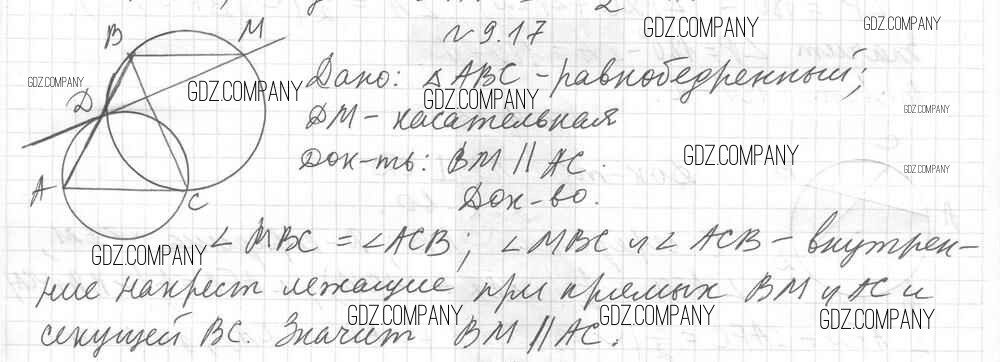 № 9.17
GDZ.COMPANY
GDZ.COMPANY
B M
Дано: △ABC – равнобедренный;
GDZ.COMPANY
GDZ.COMPANY
GDZ.COMPANY
D
DM – касательная
GDZ.COMPANY
Док-ть: BM || AC.
GDZ.COMPANY
GDZ.COMPANY
A C
Док-во.
∠ MBC = ∠ACB; ∠MBC и ∠ ACB – внутрен-
GDZ.COMPANY
ние накрест лежащие при прямых BM и AC и
секущей BC. Значит BM || AC.
GDZ.COMPANY
GDZ.COMPANY
GDZ.COMPANY